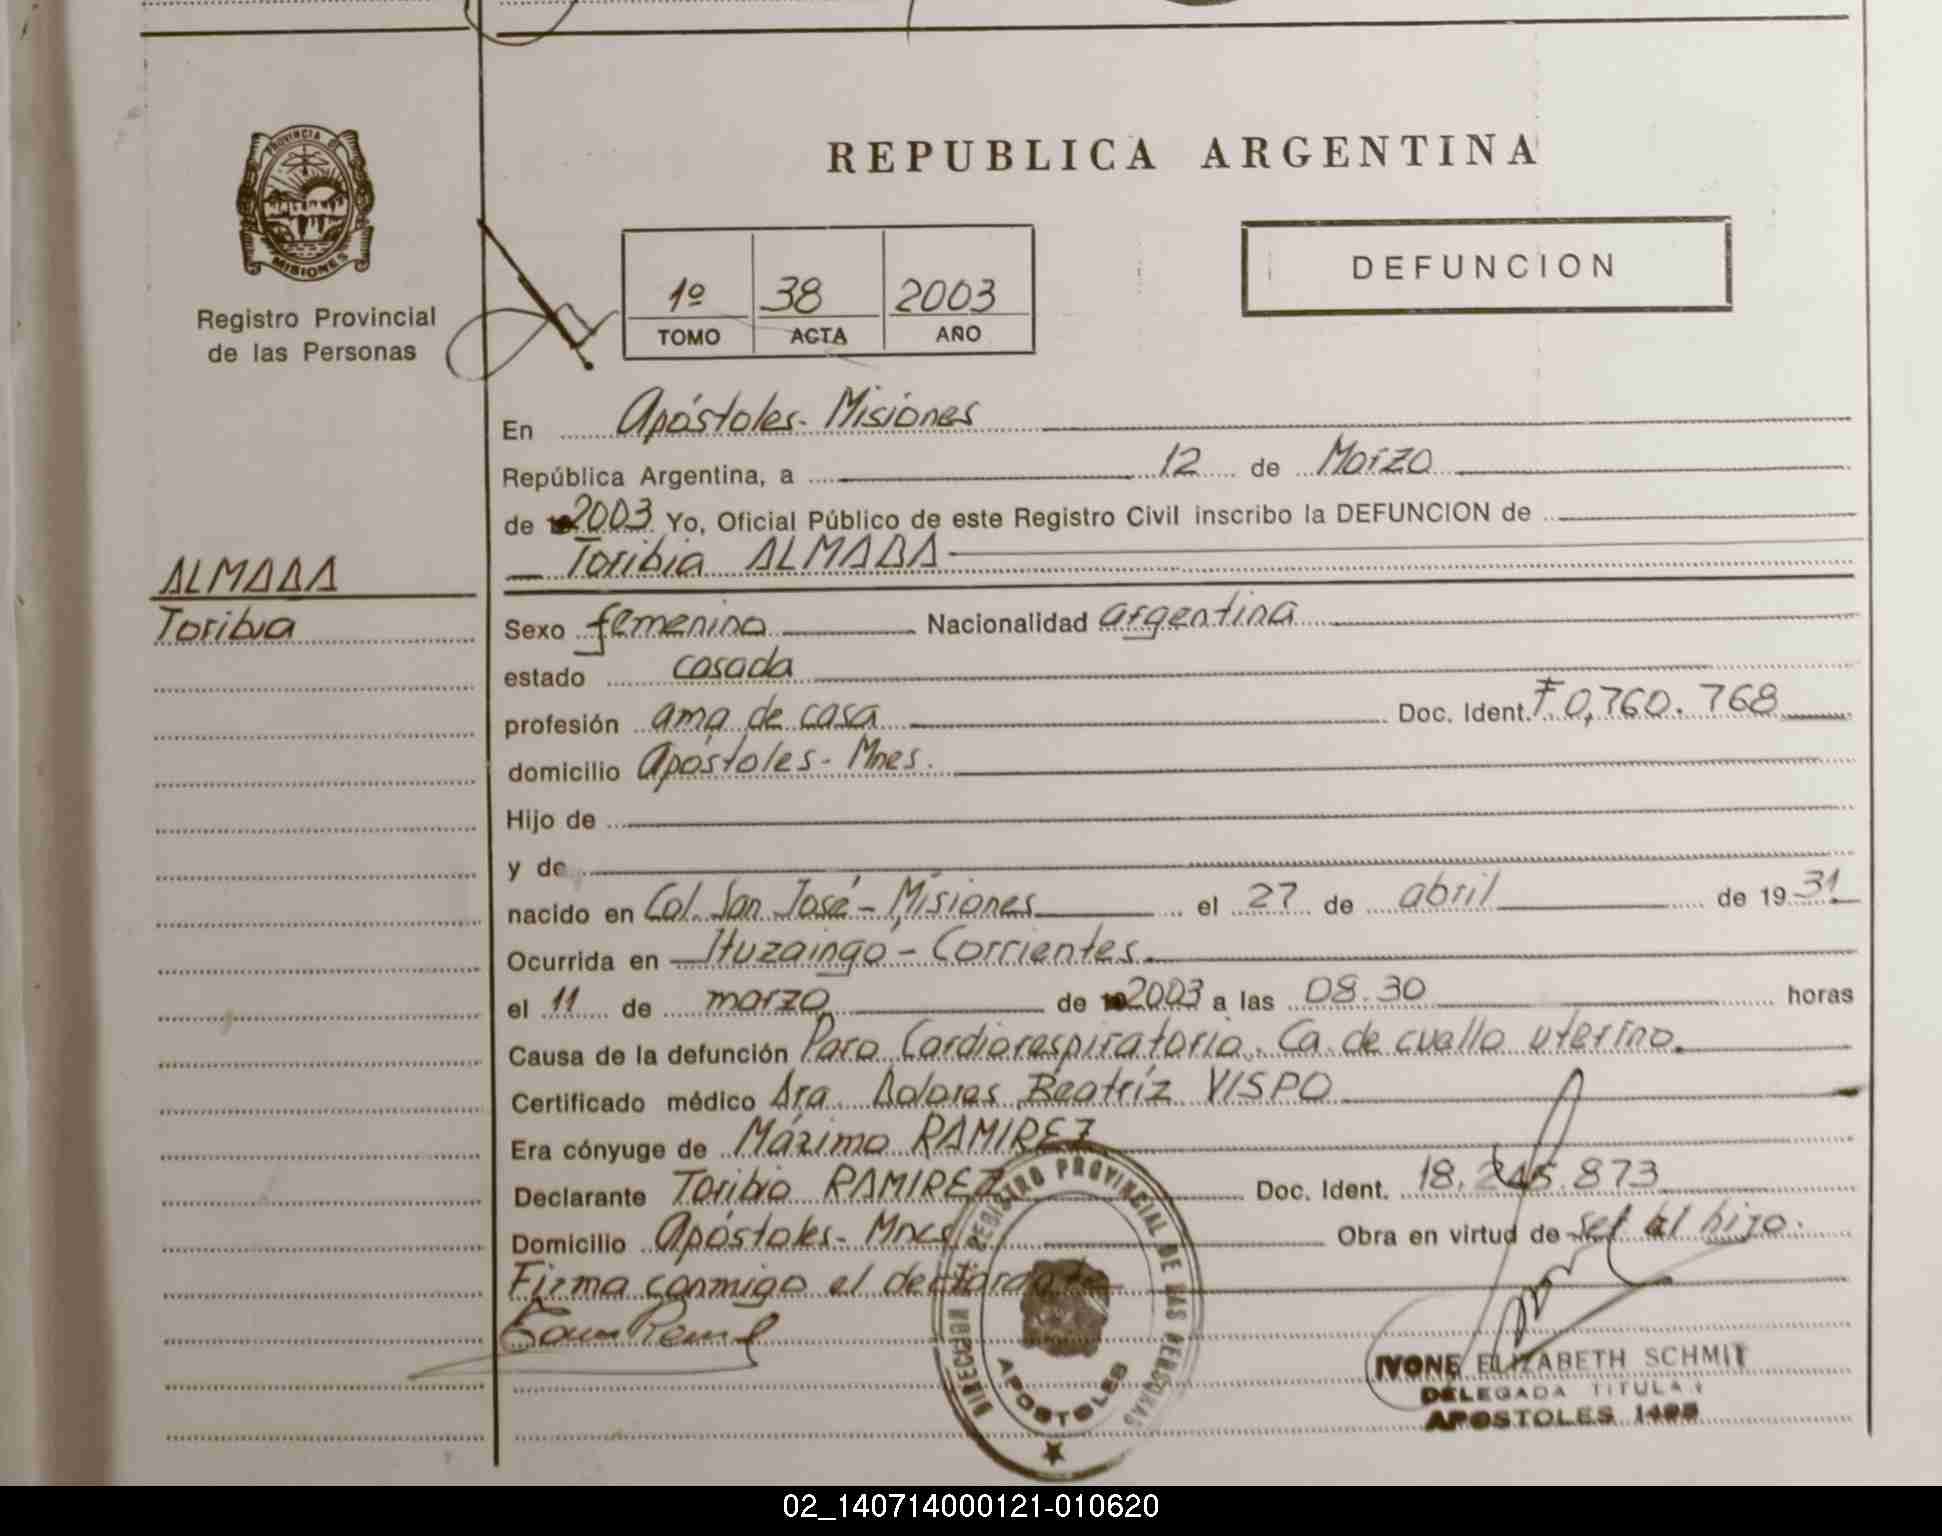 PROVINCIA DE
MISIONES
Registro Provincial
de las Personas
REPUBLICA ARGENTINA
DEFUNCION
1º 38 2003
TOMO ACTA AÑO
En Apóstoles - Misiones
República Argentina, a 12 de Marzo
de 2003 Yo, Oficial Público de este Registro Civil inscribo la DEFUNCION de
Toribia ALMADA
ALMADA
Toribia
Sexo femenino Nacionalidad argentina
estado casada
profesión ama de casa Doc. Ident. F 0,760.768
domicilio Apóstoles - Mnes.
Hijo de
y de
nacido en Col. San José - Misiones el 27 de abril de 1931
Ocurrida en Ituzaingó - Corrientes
el 11 de marzo de 2003 a las 08.30 horas
Causa de la defunción Paro Cardiorespiratorio. Ca. de cuello uterino.
Certificado médico Dra. Dolores Beatríz VISPO
Era cónyuge de Máximo RAMIREZ
Declarante Toribio RAMIREZ Doc. Ident. 18.245.873
Domicilio Apóstoles - Mnes Obra en virtud de ser el hijo.
Firma conmigo el declarante
DIRECCION REGISTRO PROVINCIAL DE LAS PERSONAS
APOSTOLES
IVONE ELIZABETH SCHMIT
DELEGADA TITULAR
APOSTOLES
02_140714000121-010620